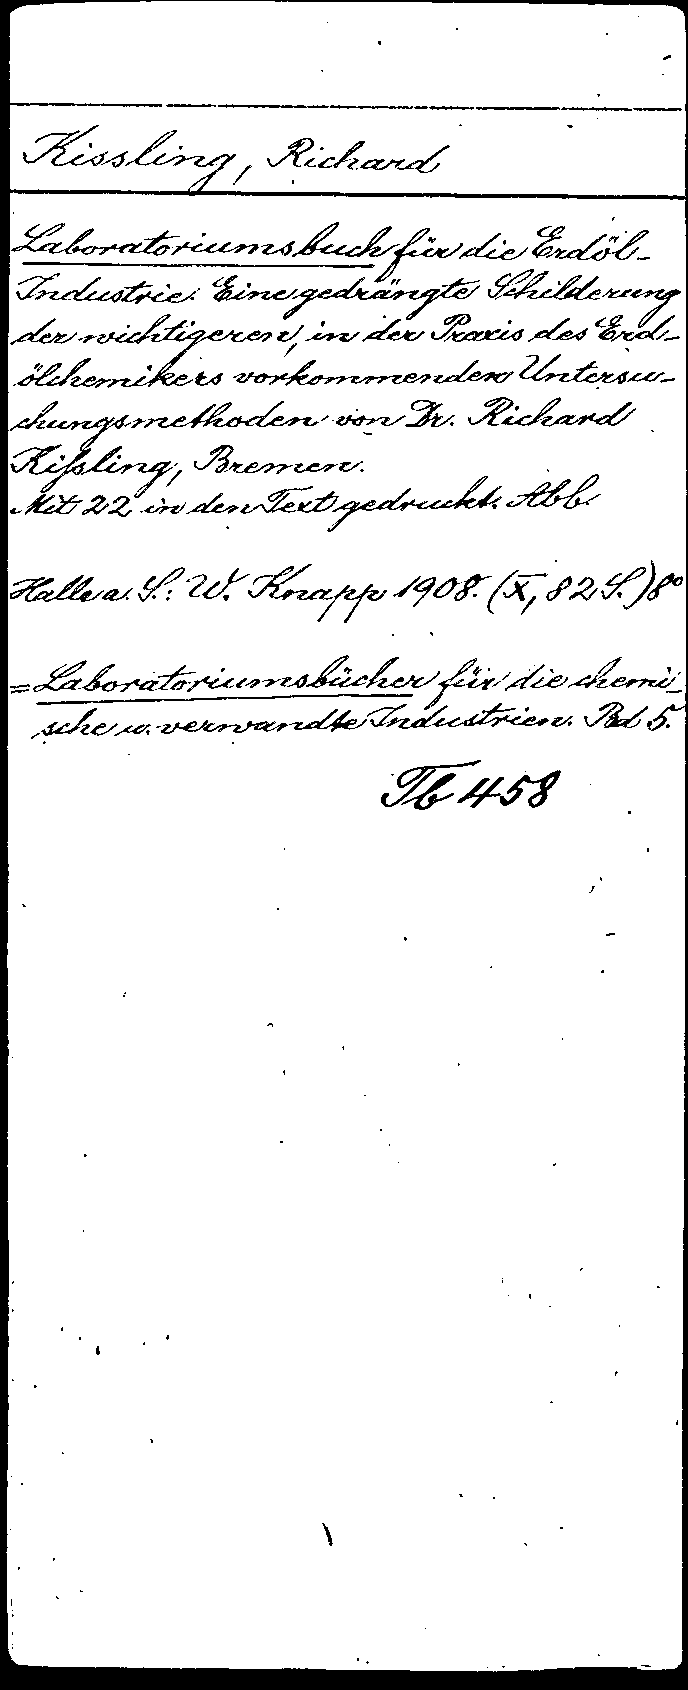 Kissling, Richard
Laboratoriumsbuch für die Erdöl-
Industrie. Eine gedrängte Schilderung
der wichtigeren, in der Praxis des Erd-
ölchemikers vorkommenden Untersu-
chungsmethoden von Dr. Richard
Kißling, Bremen.
Mit 22 in den Text gedruckt. Abb.
Halle a. S.: W. Knapp 1908. (X, 82 S.) 8°
=Laboratoriumsbücher für die chemi-
sche u. verwandte Industrien. Bd 5.
Tb 458